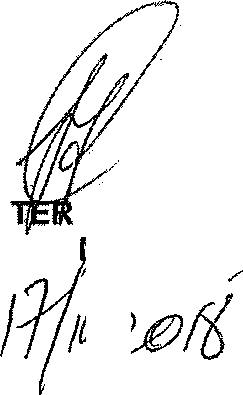 TER
17/11 2018